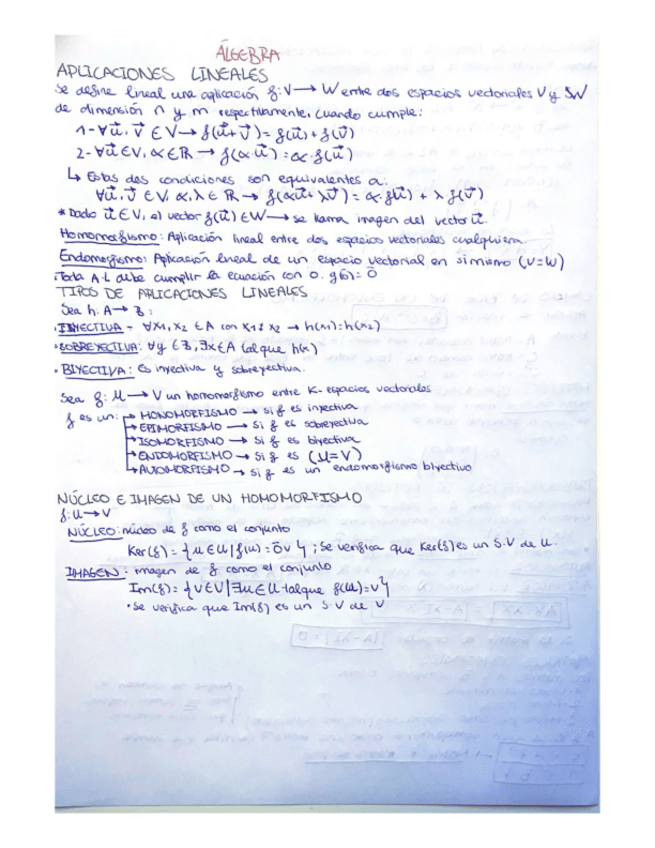 ÁLGEBRA
APLICACIONES LINEALES
Se define lineal una aplicación f: V → W entre dos espacios vectoriales V y W
de dimensión n y m respectivamente, cuando cumple:
1- ∀u⃗, v⃗ ∈ V → f(u⃗+v⃗) = f(u⃗) + f(v⃗)
2- ∀u⃗ ∈ V, α ∈ ℝ → f(α·u⃗) = α·f(u⃗)
↳ Estas dos condiciones son equivalentes a:
∀u⃗, v⃗ ∈ V, α, λ ∈ ℝ → f(αu⃗ + λv⃗) = α·f(u⃗) + λ f(v⃗)
* Dado u⃗ ∈ V, el vector f(u⃗) ∈ W → se llama imagen del vector u⃗.
Homomorfismo: Aplicación lineal entre dos espacios vectoriales cualquiera.
Endomorfismo: Aplicación lineal de un espacio vectorial en si mismo (V=W)
·Toda A.L debe cumplir la ecuación con 0. f(0) = 0̄
TIPOS DE APLICACIONES LINEALES
Sea h: A → B:
·INYECTIVA - ∀x1, x2 ∈ A con x1 ≠ x2 → h(x1) ≠ h(x2)
·SOBREYECTIVA: ∀y ∈ B, ∃x ∈ A tal que h(x)
· BIYECTIVA: Es inyectiva y sobreyectiva.
Sea f: U → V un homomorfismo entre K-espacios vectoriales
f es un: → MONOMORFISMO → si f es inyectiva
→ EPIMORFISMO → si f es sobreyectiva
→ ISOMORFISMO → si f es biyectiva
→ ENDOMORFISMO → si f es (U=V)
→ AUTOMORFISMO → si f es un endomorfismo biyectivo
NÚCLEO E IMAGEN DE UN HOMOMORFISMO
f: U → V
NÚCLEO: núcleo de f como el conjunto
Ker(f) = {u ∈ U | f(u) = 0̄v}; Se verifica que Ker(f) es un S.V de U.
IMAGEN: imagen de f como el conjunto
Im(f) = {v ∈ V | ∃u ∈ U tal que f(u) = v}
· Se verifica que Im(f) es un S.V de V